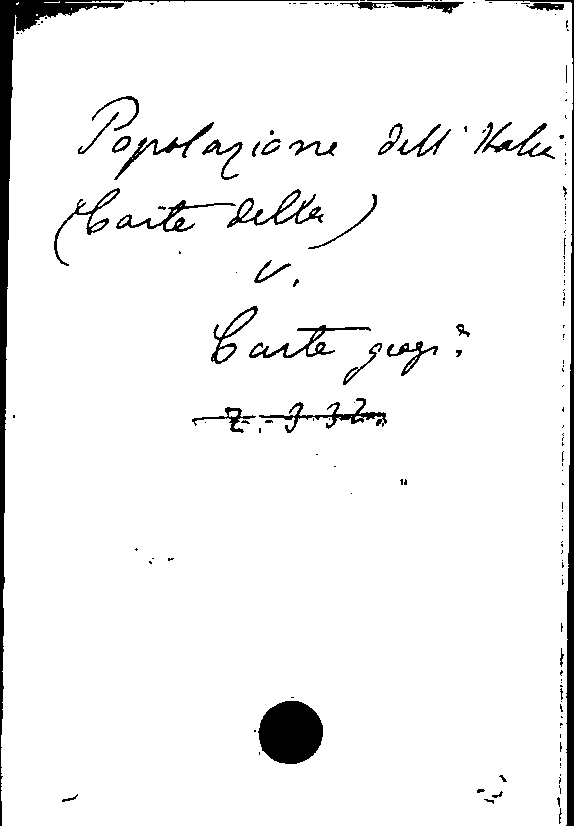 Popolazione dell'Italia
(Carte della)
v.
Carte geogr:e
Z. 932.